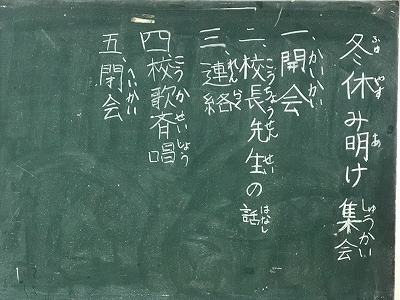 冬休み明け集会
一、開会
二、校長先生の話
三、連絡
四、校歌斉唱
五、閉会